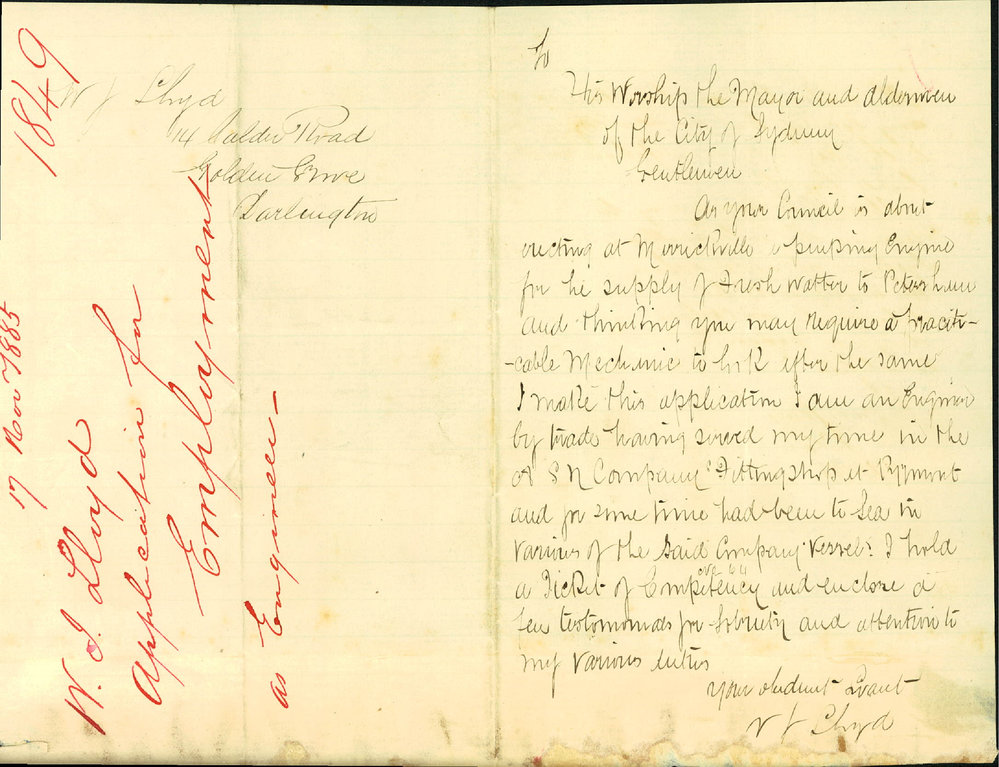 To
His Worship the Mayor and Aldermen
of the City of Sydney
Gentlemen
As your Council is about
erecting at Marrickville a pumping Engine
for the supply of Fresh watter to Petersham
and thinking you may require a practi-
-cable Mechinic to look after the same
I make this application I am an Enginer
by trade having served my time in the
A S N Company's Fitting shop at Pyrmont
and for some time had been to Sea in
various of the said Company Vessels I hold
a Ticket of Competency and enclose a
few testomonads for Sobriety and attention to
my various duties
Your obedient Servant
W J Lloyd
W J Lloyd
14 Calder Road
Golden Grove
Darlington
1849
17 Nov 1885
W. J. Lloyd
Application for
Employment
as Engineer